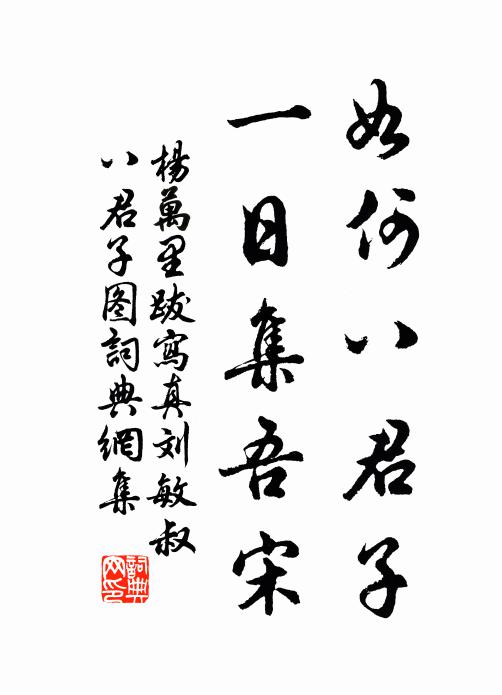 如何八君子
一日集吾宋
楊萬里跋寫真刘敏叔
八君子图詞典網集
詞典网印